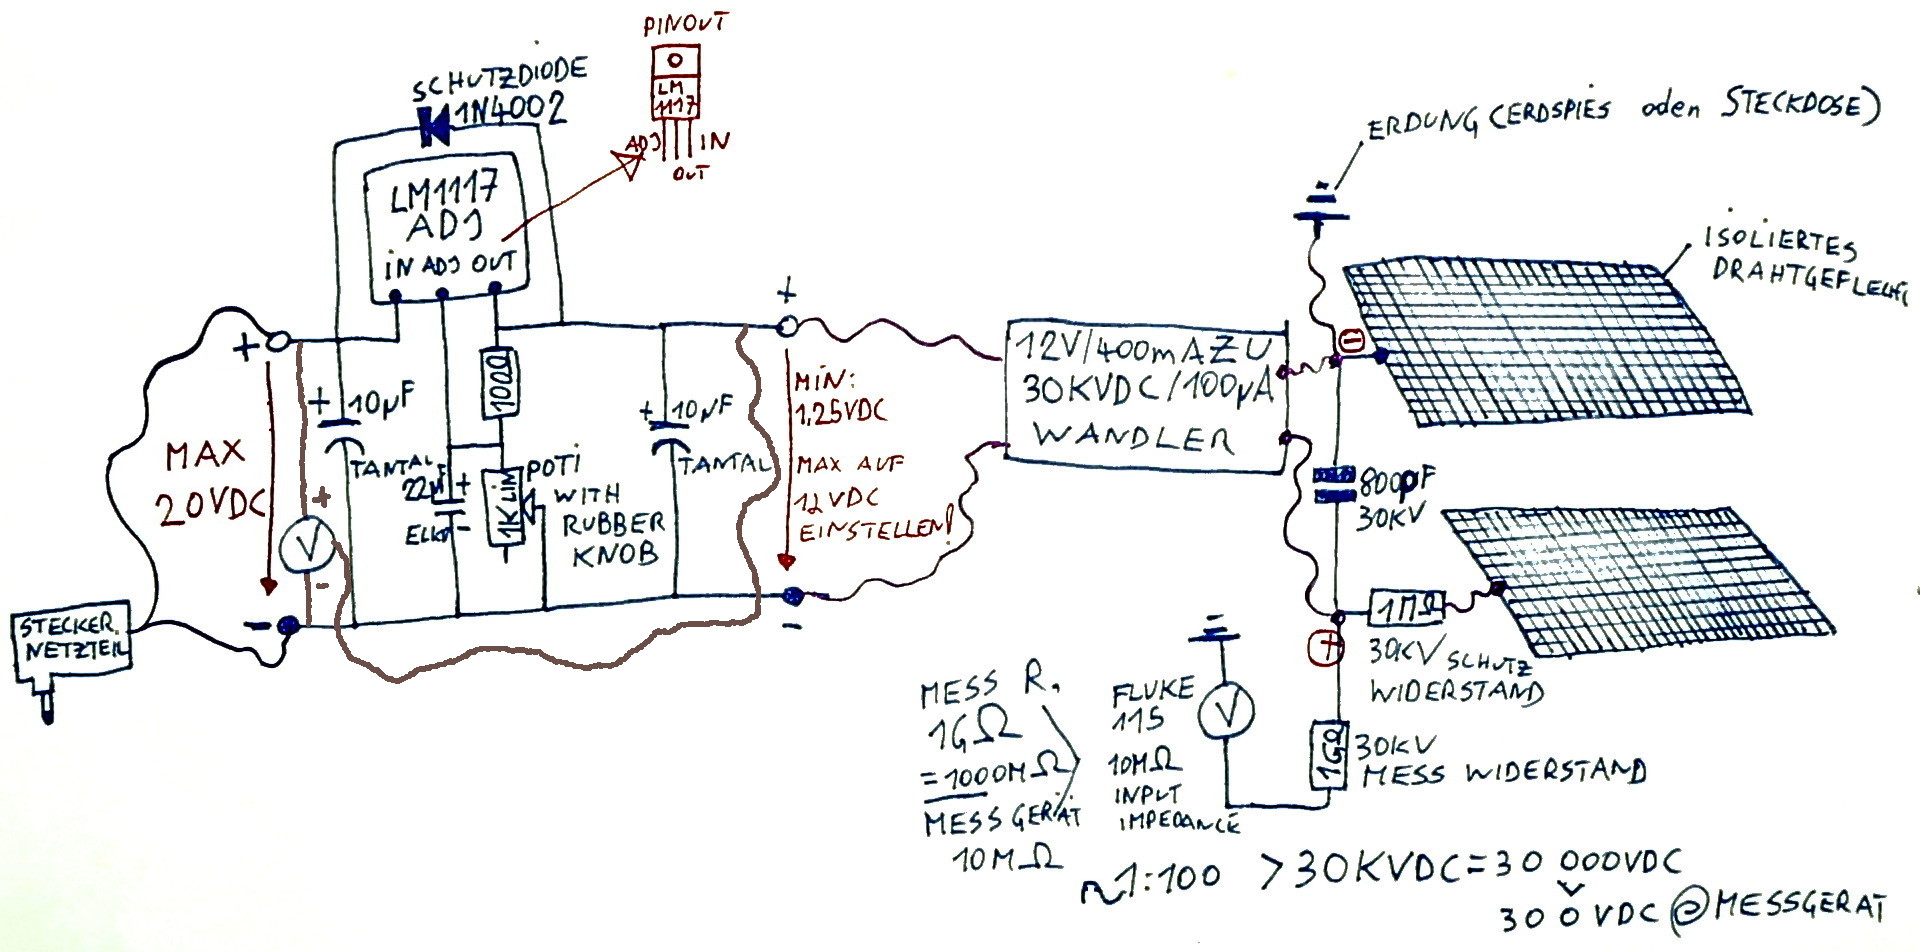 PINOUT
LM
1117
ADJ
IN
OUT
SCHUTZDIODE
1N4002
LM1117
ADJ
iN ADJ OUT
ERDUNG (ERDSPIES oden STECKDOSE)
ISOLIERTES
DRAHTGEFLECHT
+
+
MAX
20VDC
+ 10µF
TANTAL
100Ω
22µF
+
-
ELKO
1K LIN
POTI
WITH
RUBBER
KNOB
+ 10µF
TANTAL
MIN:
1,25VDC
MAX AUF
12VDC
EINSTELLEN!
12V/400mA ZU
30KVDC/100µA
WANDLER
-
800pF
30KV
+
V
-
-
-
STECKER
NETZTEIL
1MΩ
+
30KV SCHUTZ
WIDERSTAND
MESS R.
1GΩ
=1000MΩ
MESSGERÄT
10MΩ
FLUKE
115
V
10MΩ
INPUT
IMPEDANCE
1GΩ
30KV
MESS WIDERSTAND
~1:100 > 30KVDC = 30 000VDC
300VDC @ MESSGERÄT